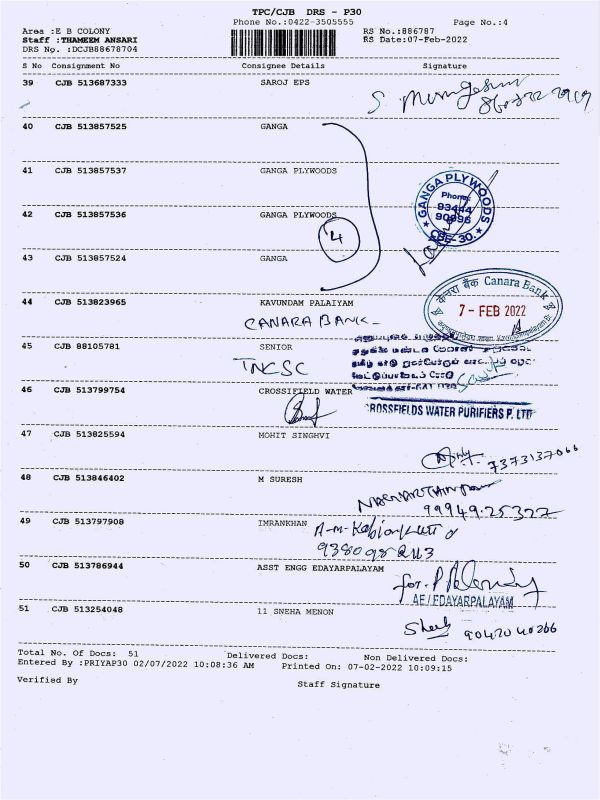 TPC/CJB DRS - P30
Phone No.:0422-3505555
Page No.:4
Area :E B COLONY
RS No.:886787
Staff :THAMEEM ANSARI
RS Date:07-Feb-2022
DRS No. :DCJB88678704
S No Consignment No Consignee Details Signature
39 CJB 513687333 SAROJ EPS
40 CJB 513857525 GANGA
41 CJB 513857537 GANGA PLYWOODS
GANGA PLYWOODS
Phone:
93444
90898
CBE-30.
42 CJB 513857536 GANGA PLYWOODS
4
43 CJB 513857524 GANGA
केनरा बैंक Canara Bank
7 - FEB 2022
44 CJB 513823965 KAVUNDAM PALAIYAM
CANARA BANK
45 CJB 88105781 SENIOR
TNCSC
46 CJB 513799754 CROSSIFIELD WATER
CROSSFIELDS WATER PURIFIERS P. LTD
47 CJB 513825594 MOHIT SINGHVI
7373137066
48 CJB 513846402 M SURESH
99949.25327
49 CJB 513797908 IMRANKHAN
50 CJB 513786944 ASST ENGG EDAYARPALAYAM
for.
AE / EDAYARPALAYAM
51 CJB 513254048 11 SNEHA MENON
9047040266
Total No. Of Docs: 51 Delivered Docs: Non Delivered Docs:
Entered By :PRIYAP30 02/07/2022 10:08:36 AM Printed On: 07-02-2022 10:09:15
Verified By Staff Signature